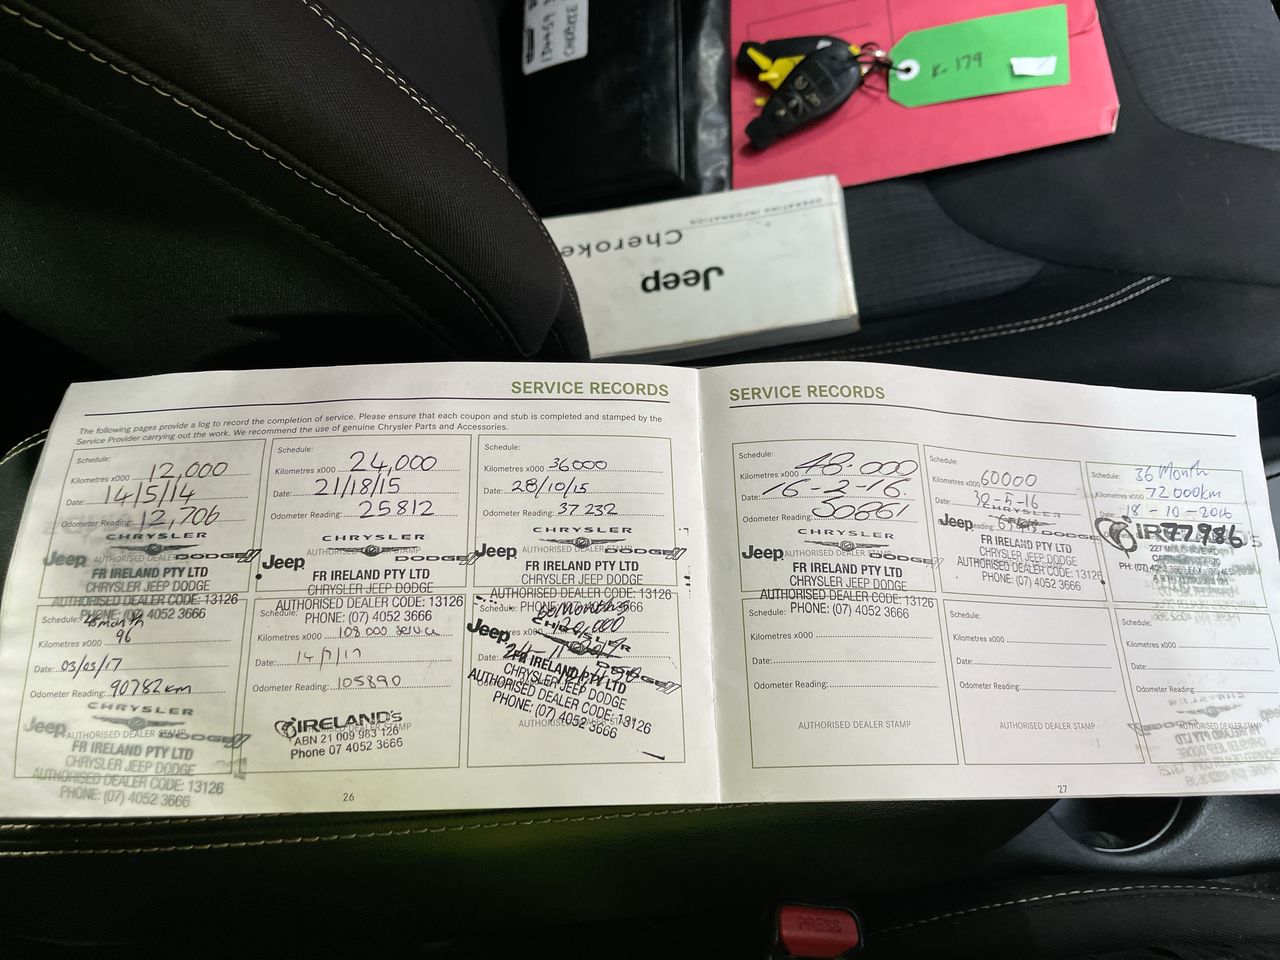 CHEROKEE
R-179
OPERATING INFORMATION
Cherokee
Jeep
SERVICE RECORDS
The following pages provide a log to record the completion of service. Please ensure that each coupon and stub is completed and stamped by the
Service Provider carrying out the work. We recommend the use of genuine Chrysler Parts and Accessories.
Schedule:
Kilometres x000 12,000
Date: 14/5/14
Odometer Reading: 12,706
CHRYSLER
Jeep AUTHORISED DEALER STAMP DODGE
FR IRELAND PTY LTD
CHRYSLER JEEP DODGE
AUTHORISED DEALER CODE: 13126
PHONE: (07) 4052 3666
Schedule:
Kilometres x000 24,000
Date: 21/18/15
Odometer Reading: 25812
CHRYSLER
Jeep DODGE
FR IRELAND PTY LTD
CHRYSLER JEEP DODGE
AUTHORISED DEALER CODE: 13126
PHONE: (07) 4052 3666
Schedule:
Kilometres x000 36000
Date: 28/10/15
Odometer Reading: 37232
CHRYSLER
Jeep AUTHORISED DEALER STAMP DODGE
FR IRELAND PTY LTD
CHRYSLER JEEP DODGE
AUTHORISED DEALER CODE: 13126
PHONE: (07) 4052 3666
Schedule: month
Kilometres x000 96
Date: 03/03/17
Odometer Reading: 90782km
CHRYSLER
Jeep DODGE
FR IRELAND PTY LTD
CHRYSLER JEEP DODGE
AUTHORISED DEALER CODE: 13126
PHONE: (07) 4052 3666
Schedule:
Kilometres x000 108.000 service
Date: 14/7/17
Odometer Reading: 105890
IRELAND'S
ABN 21 009 983 126
Phone 07 4052 3666
Schedule: Months
120,000
Date:
Jeep CHRYSLER DODGE
FR IRELAND PTY LTD
CHRYSLER JEEP DODGE
AUTHORISED DEALER CODE: 13126
PHONE: (07) 4052 3666
AUTHORISED DEALER STAMP
26
SERVICE RECORDS
Schedule:
Kilometres x000 48.000
Date: 16-2-16.
Odometer Reading: 50861
CHRYSLER
Jeep AUTHORISED DEALER STAMP DODGE
FR IRELAND PTY LTD
CHRYSLER JEEP DODGE
AUTHORISED DEALER CODE: 13126
PHONE: (07) 4052 3666
Schedule:
Kilometres x000 60000
Date: 30-5-16
CHRYSLER
Jeep DODGE
FR IRELAND PTY LTD
CHRYSLER JEEP DODGE
AUTHORISED DEALER CODE: 13126
PHONE: (07) 4052 3666
Schedule: 36 Month
Kilometres x000 72000km
Date: 18-10-2016
77986
Schedule:
Kilometres x000
Date:
Odometer Reading:
AUTHORISED DEALER STAMP
Schedule:
Kilometres x000
Date:
Odometer Reading:
AUTHORISED DEALER STAMP
Schedule:
Kilometres x000
Date:
Odometer Reading:
AUTHORISED DEALER STAMP
27
PRESS